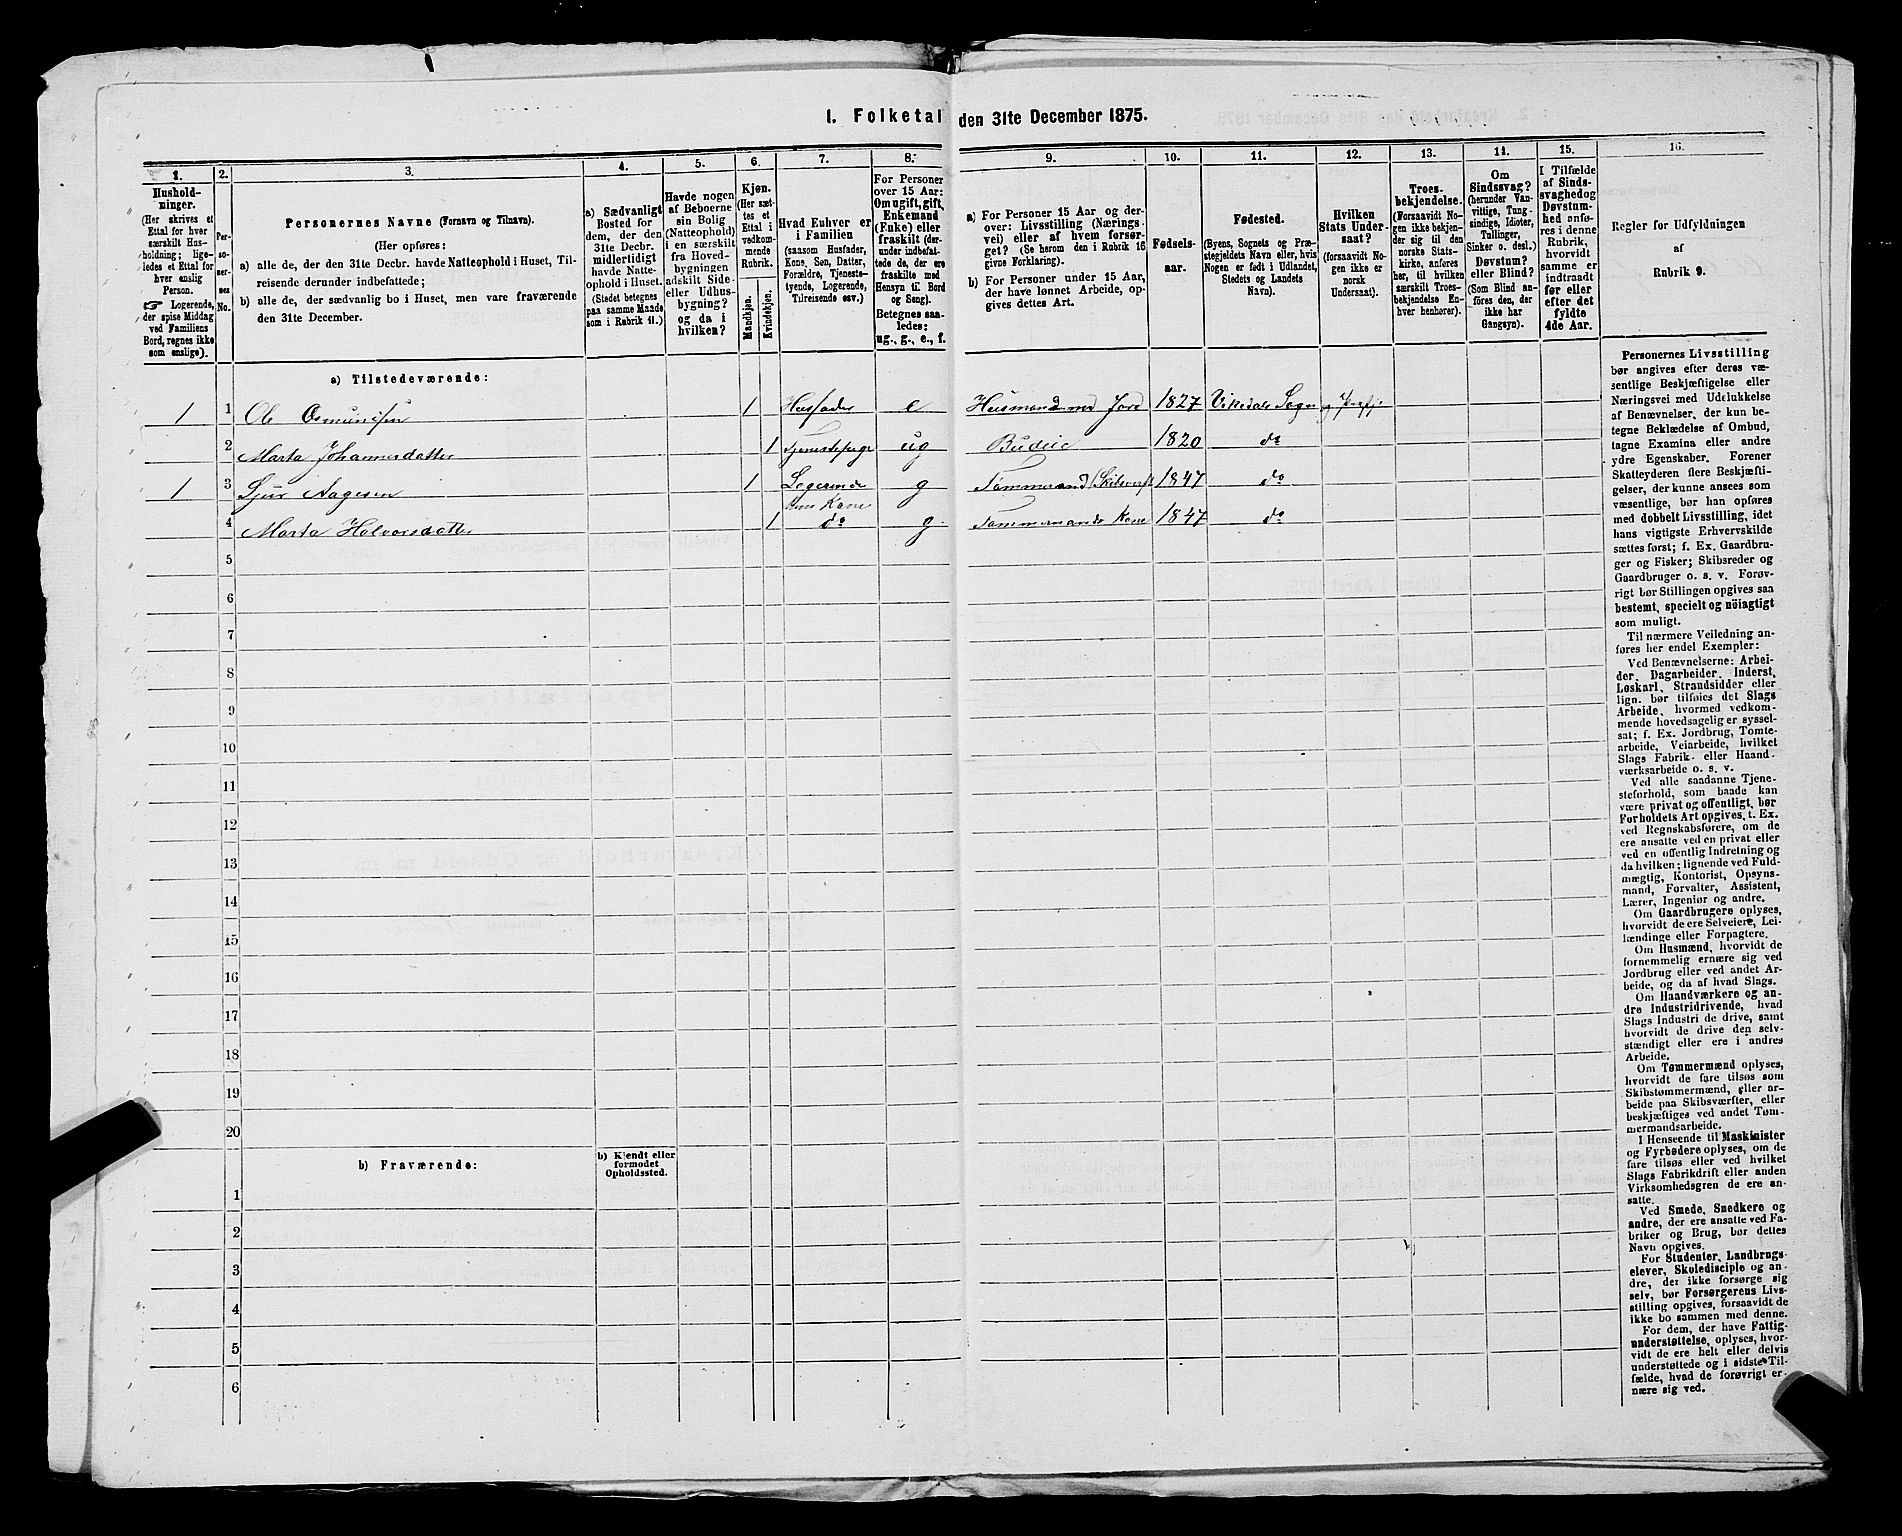 1. Folketal den 31te December 1875.
1.
2.
3.
4.
5.
6.
7.
8.
9.
10.
11.
12.
13.
14.
15.
16.
Hushold-
ninger.
(Her skrives et
Ettal for hver
særskilt Hus-
holdning; lige-
ledes et Ettal for
hver enslig
Person.
☞ Logerende,
der spise Middag
ved Familiens
Bord, regnes ikke
som enslige).
Per-
so-
ner-
nes
No.
Personernes Navne (Fornavn og Tilnavn).
(Her opføres:
a) alle de, der den 31te Decbr. havde Natteophold i Huset, Til-
reisende derunder indbefattede;
b) alle de, der sædvanlig bo i Huset, men vare fraværende
den 31te December.
a) Sædvanligt
Bosted for
dem, der den
31te Decbr.
midlertidigt
havde Natte-
ophold i Huset.
(Stedet betegnes
paa samme Maade
som i Rubrik 11.)
Havde nogen
af Beboerne
sin Bolig
(Natteophold)
i en særskilt
fra Hoved-
bygningen
adskilt Side-
eller Udhus-
bygning?
og da i
hvilken?
Kjøn.
(Her sæt-
tes et
Ettal i
vedkom-
mende
Rubrik.
Mandkjøn.
Kvindekjøn.
Hvad Enhver er
i Familien
(saasom Husfader,
Kone, Søn, Datter,
Forældre, Tjeneste-
tyende, Logerende,
Tilreisende osv.)
For Personer
over 15 Aar:
Om ugift, gift,
Enkemand
(Enke) eller
fraskilt (der-
under indbefat-
tede de, der ere
fraskilte med
Hensyn til Bord
og Seng).
Betegnes saa-
ledes:
ug., g., e., f.
a) For Personer 15 Aar og der-
over: Livsstilling (Nærings-
vei) eller af hvem forsør-
get? (Se herom den i Rubrik 16
givne Forklaring).
b) For Personer under 15 Aar,
der have lønnet Arbeide, op-
gives dettes Art.
Fødsels-
aar.
Fødested.
(Byens, Sognets og Præ-
stegjeldets Navn eller, hvis
Nogen er født i Udlandet,
Stedets og Landets
Navn).
Hvilken
Stats Under-
saat?
(forsaavidt No-
gen ikke er
norsk
Undersaat).
Troes-
bekjendelse.
(Forsaavidt No-
gen ikke bekjen-
der sig til den
norske Stats-
kirke, anføres
her, til hvilken
særskilt Troes-
bekjendelse En-
hver henhører).
Om
Sindssvag?
(herunder Van-
vittige, Tung-
sindige, Idioter,
Tullinger,
Sinker o. desl.)
Døvstum?
eller Blind?
(Som Blind an-
føres den, der
ikke har
Gangsyn).
I Tilfælde
af Sinds-
svaghed og
Døvstum-
hed anfø-
res i denne
Rubrik,
hvorvidt
samme er
indtraadt
før eller
efter det
fyldte
4de Aar.
Regler for Udfyldningen
af
Rubrik 9.
a) Tilstedeværende:
1 1 Ole Osmundsen 1 Husfader e Husmand med Jord 1827 Vikedals Sogn og
2 Marta Johannesdatter 1 ug Budeie 1820 do
1 3 Sjur Aagesen 1 Logerende g Tømmermand 1847 do
Kone
4 Marta Halvorsdatter 1 do g. Tømmermands Kone 1847 do
5
6
7
8
9
10
11
12
13
14
15
16
17
18
19
20
b) Fraværende:
b) Kjendt eller
formodet
Opholdssted.
1
2
3
4
5
6
Personernes Livsstilling
bør angives efter deres væ-
sentlige Beskjæftigelse eller
Næringsvei med Udelukkelse
af Benævnelser, der kun be-
tegne Beklædelse af Ombud,
tagne Examina eller andre
ydre Egenskaber. Forener
Skatteyderen flere Beskjæfti-
gelser, der kunne ansees som
væsentlige, bør han opføres
med dobbelt Livsstilling, idet
hans vigtigste Erhvervskilde
sættes først; f. Ex. Gaardbru-
ger og Fisker; Skibsreder og
Gaardbruger o. s. v. Forøv-
rigt bør Stillingen opgives saa
bestemt, specielt og nöiagtigt
som muligt.
Til nærmere Veiledning an-
føres her endel Exempler:
Ved Benævnelserne: Arbei-
der, Dagarbeider, Inderst,
Løskarl, Strandsidder eller
lign. bør tilføies det Slags
Arbeide, hvormed vedkom-
mende hovedsagelig er syssel-
sat; f. Ex. Jordbrug, Tomte-
arbeide, Veiarbeide, hvilket
Slags Fabrik- eller Haand-
værksarbeide o. s. v.
Ved alle saadanne Tjene-
steforhold, som baade kan
være privat og offentligt, bør
Forholdets Art opgives, t. Ex.
ved Regnskabsførere, om de
ere ansatte ved en privat eller
ved en offentlig Indretning og
da hvilken; lignende ved Fuld-
mægtig, Kontorist, Opsyns-
mand, Forvalter, Assistent,
Lærer, Ingeniør og andre.
Om Gaardbrugere oplyses,
hvorvidt de ere Selveiere, Lei-
lændinge eller Forpagtere.
Om Husmænd, hvorvidt de
fornemmelig ernære sig ved
Jordbrug eller ved andet Ar-
beide, og da af hvad Slags.
Om Haandværkere og an-
dre Industridrivende, hvad
Slags Industri de drive, samt
hvorvidt de drive den selv-
stændigt eller ere i andres
Arbeide.
Om Tømmermænd oplyses,
hvorvidt de fare tilsøs som
Skibstømmermænd, eller ar-
beide paa Skibsværfter, eller
beskjæftiges ved andet Tøm-
mermandsarbeide.
I Henseende til Maskinister
og Fyrbødere oplyses, om de
fare tilsøs eller ved hvilket
Slags Fabrikdrift eller anden
Virksomhedsgren de ere an-
satte.
Ved Smede, Snedkere og
andre, der ere ansatte ved Fa-
briker og Brug, bør dettes
Navn opgives.
For Studenter, Landbrugs-
elever, Skoledisciple og an-
dre, der ikke forsørge sig
selv, bør Forsørgerens Livs-
stilling opgives, forsaavidt de
ikke bo sammen med denne.
For dem, der have Fattig-
understøttelse, oplyses, hvor-
vidt de ere helt eller delvis
understøttede og i sidste Til-
fælde, hvad de forøvrigt er-
nære sig ved.